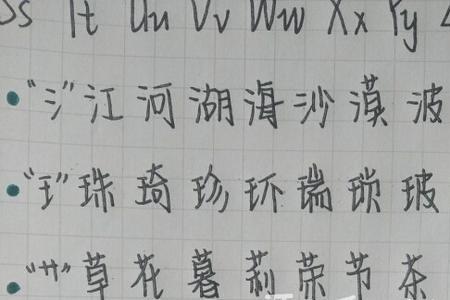 Ss Tt Uu Vv Ww Xx Yy
“氵”江河湖海沙漠波
“王”珠琦珍环瑞琐玻
“艹”草花暮莉荣节茶